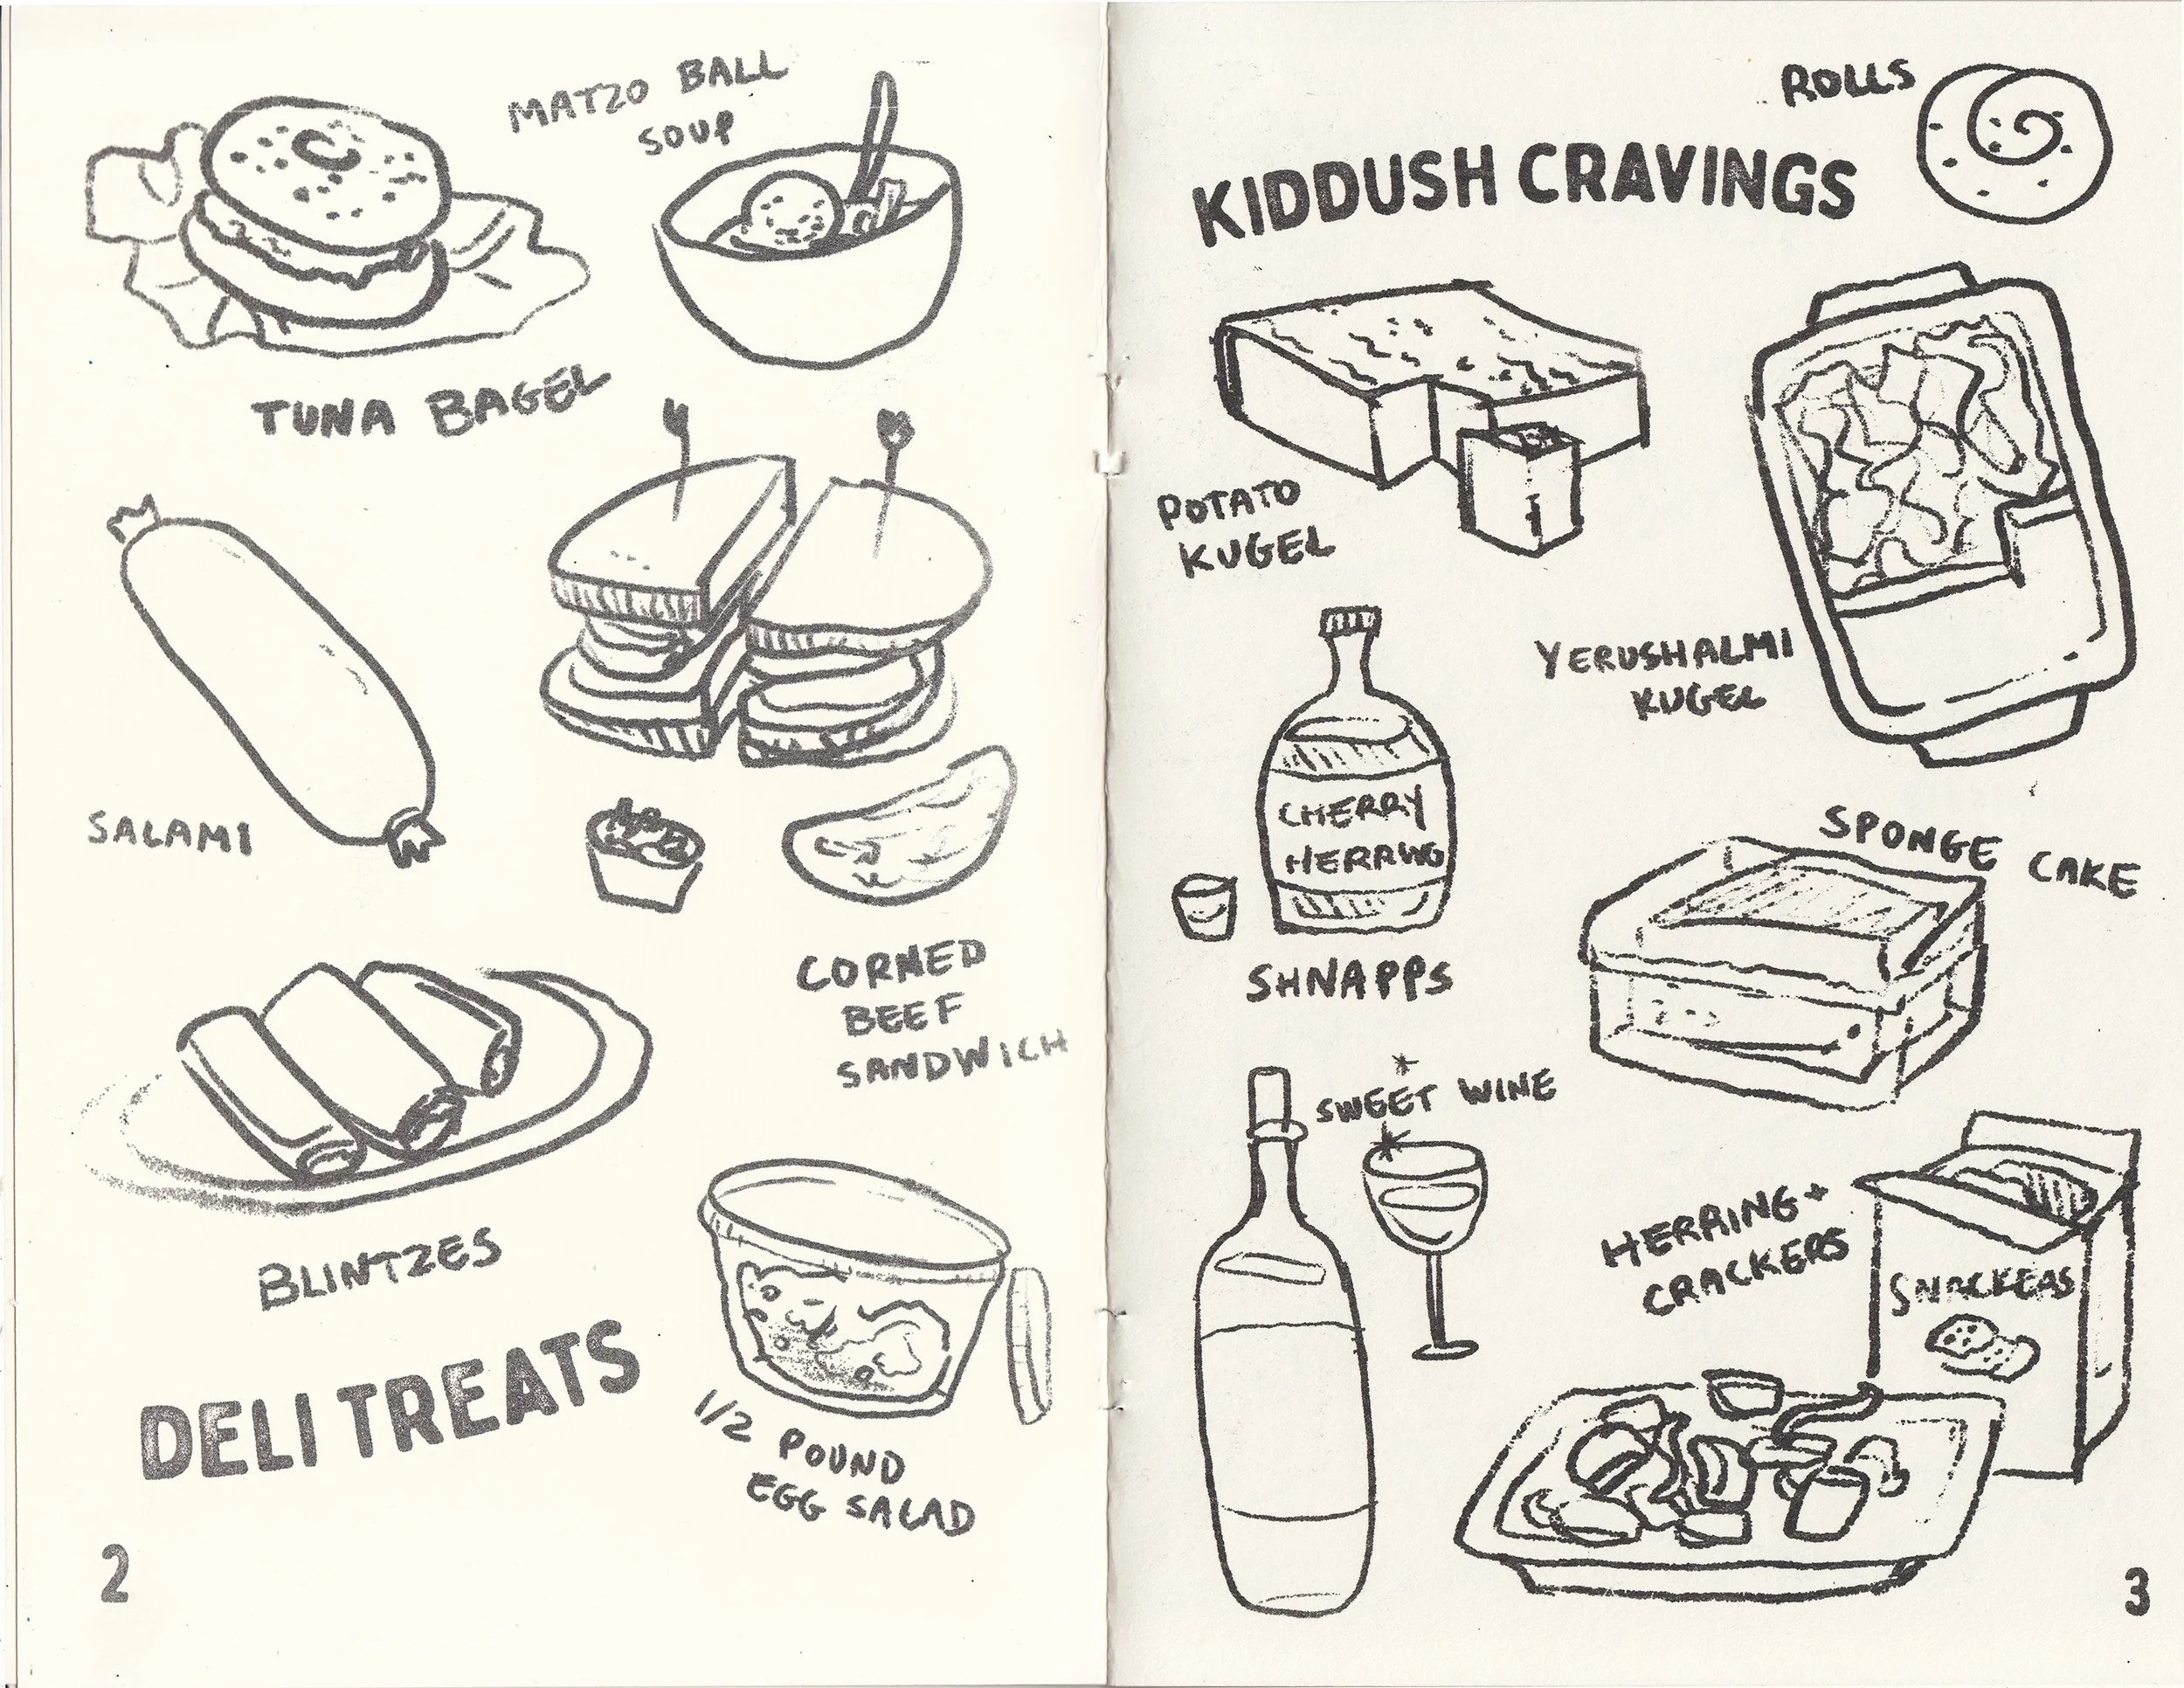 MATZO BALL
SOUP
TUNA BAGEL
SALAMI
CORNED
BEEF
SANDWICH
BLINTZES
DELI TREATS
1/2 POUND
EGG SALAD
2
ROLLS
KIDDUSH CRAVINGS
POTATO
KUGEL
YERUSHALMI
KUGEL
CHERRY
HERRING
SHNAPPS
SPONGE CAKE
SWEET WINE
HERRING +
CRACKERS
SNACKERS
3